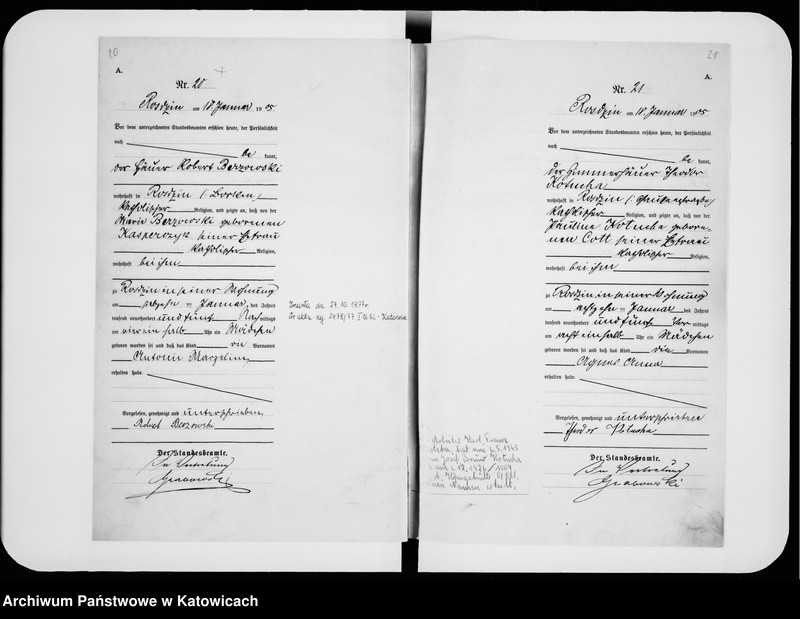 20
A.
Nr. 20
Rosdzin am 18. Januar 1905
Vor dem unterzeichneten Standesbeamten erschien heute, der Persönlichkeit
nach
be kannt,
der Häuer Robert Berzowski
wohnhaft in Rosdzin
katholischer Religion, und zeigte an, daß von der
Marie Berzowski geborenen
Kasperczyk seiner Ehefrau
katholischer Religion,
wohnhaft bei ihm
zu Rosdzin in seiner Wohnung
am Januar, des Jahres
tausend neunhundert und fünf Nach mittags
um vier ein halb Uhr ein Mädchen
geboren worden sei und daß das Kind die Vornamen
Antonie
erhalten habe.
Vorgelesen, genehmigt und unterschrieben
Robert Berzowski
Der Standesbeamte.
In Vertretung
Grabowski
Zmarła dn. 27.10.1977r
Nr aktu 2478/77
21
A.
Nr. 21
Rosdzin am 18. Januar 1905
Vor dem unterzeichneten Standesbeamten erschien heute, der Persönlichkeit
nach
be kannt,
der Zimmerhäuer Theodor
Kotucha
wohnhaft in Rosdzin
katholischer Religion, und zeigte an, daß von der
Pauline Kotucha gebore-
nen Cott seiner Ehefrau
katholischer Religion,
wohnhaft bei ihm
zu Rosdzin in seiner Wohnung
am achtzehn Januar des Jahres
tausend neunhundert und fünf Vor mittags
um acht ein halb Uhr ein Mädchen
geboren worden sei und daß das Kind die Vornamen
Agnes Anna
erhalten habe.
Vorgelesen, genehmigt und unterschrieben
Theodor Kotucha
Der Standesbeamte.
In Vertretung
Grabowski
Archiwum Państwowe w Katowicach